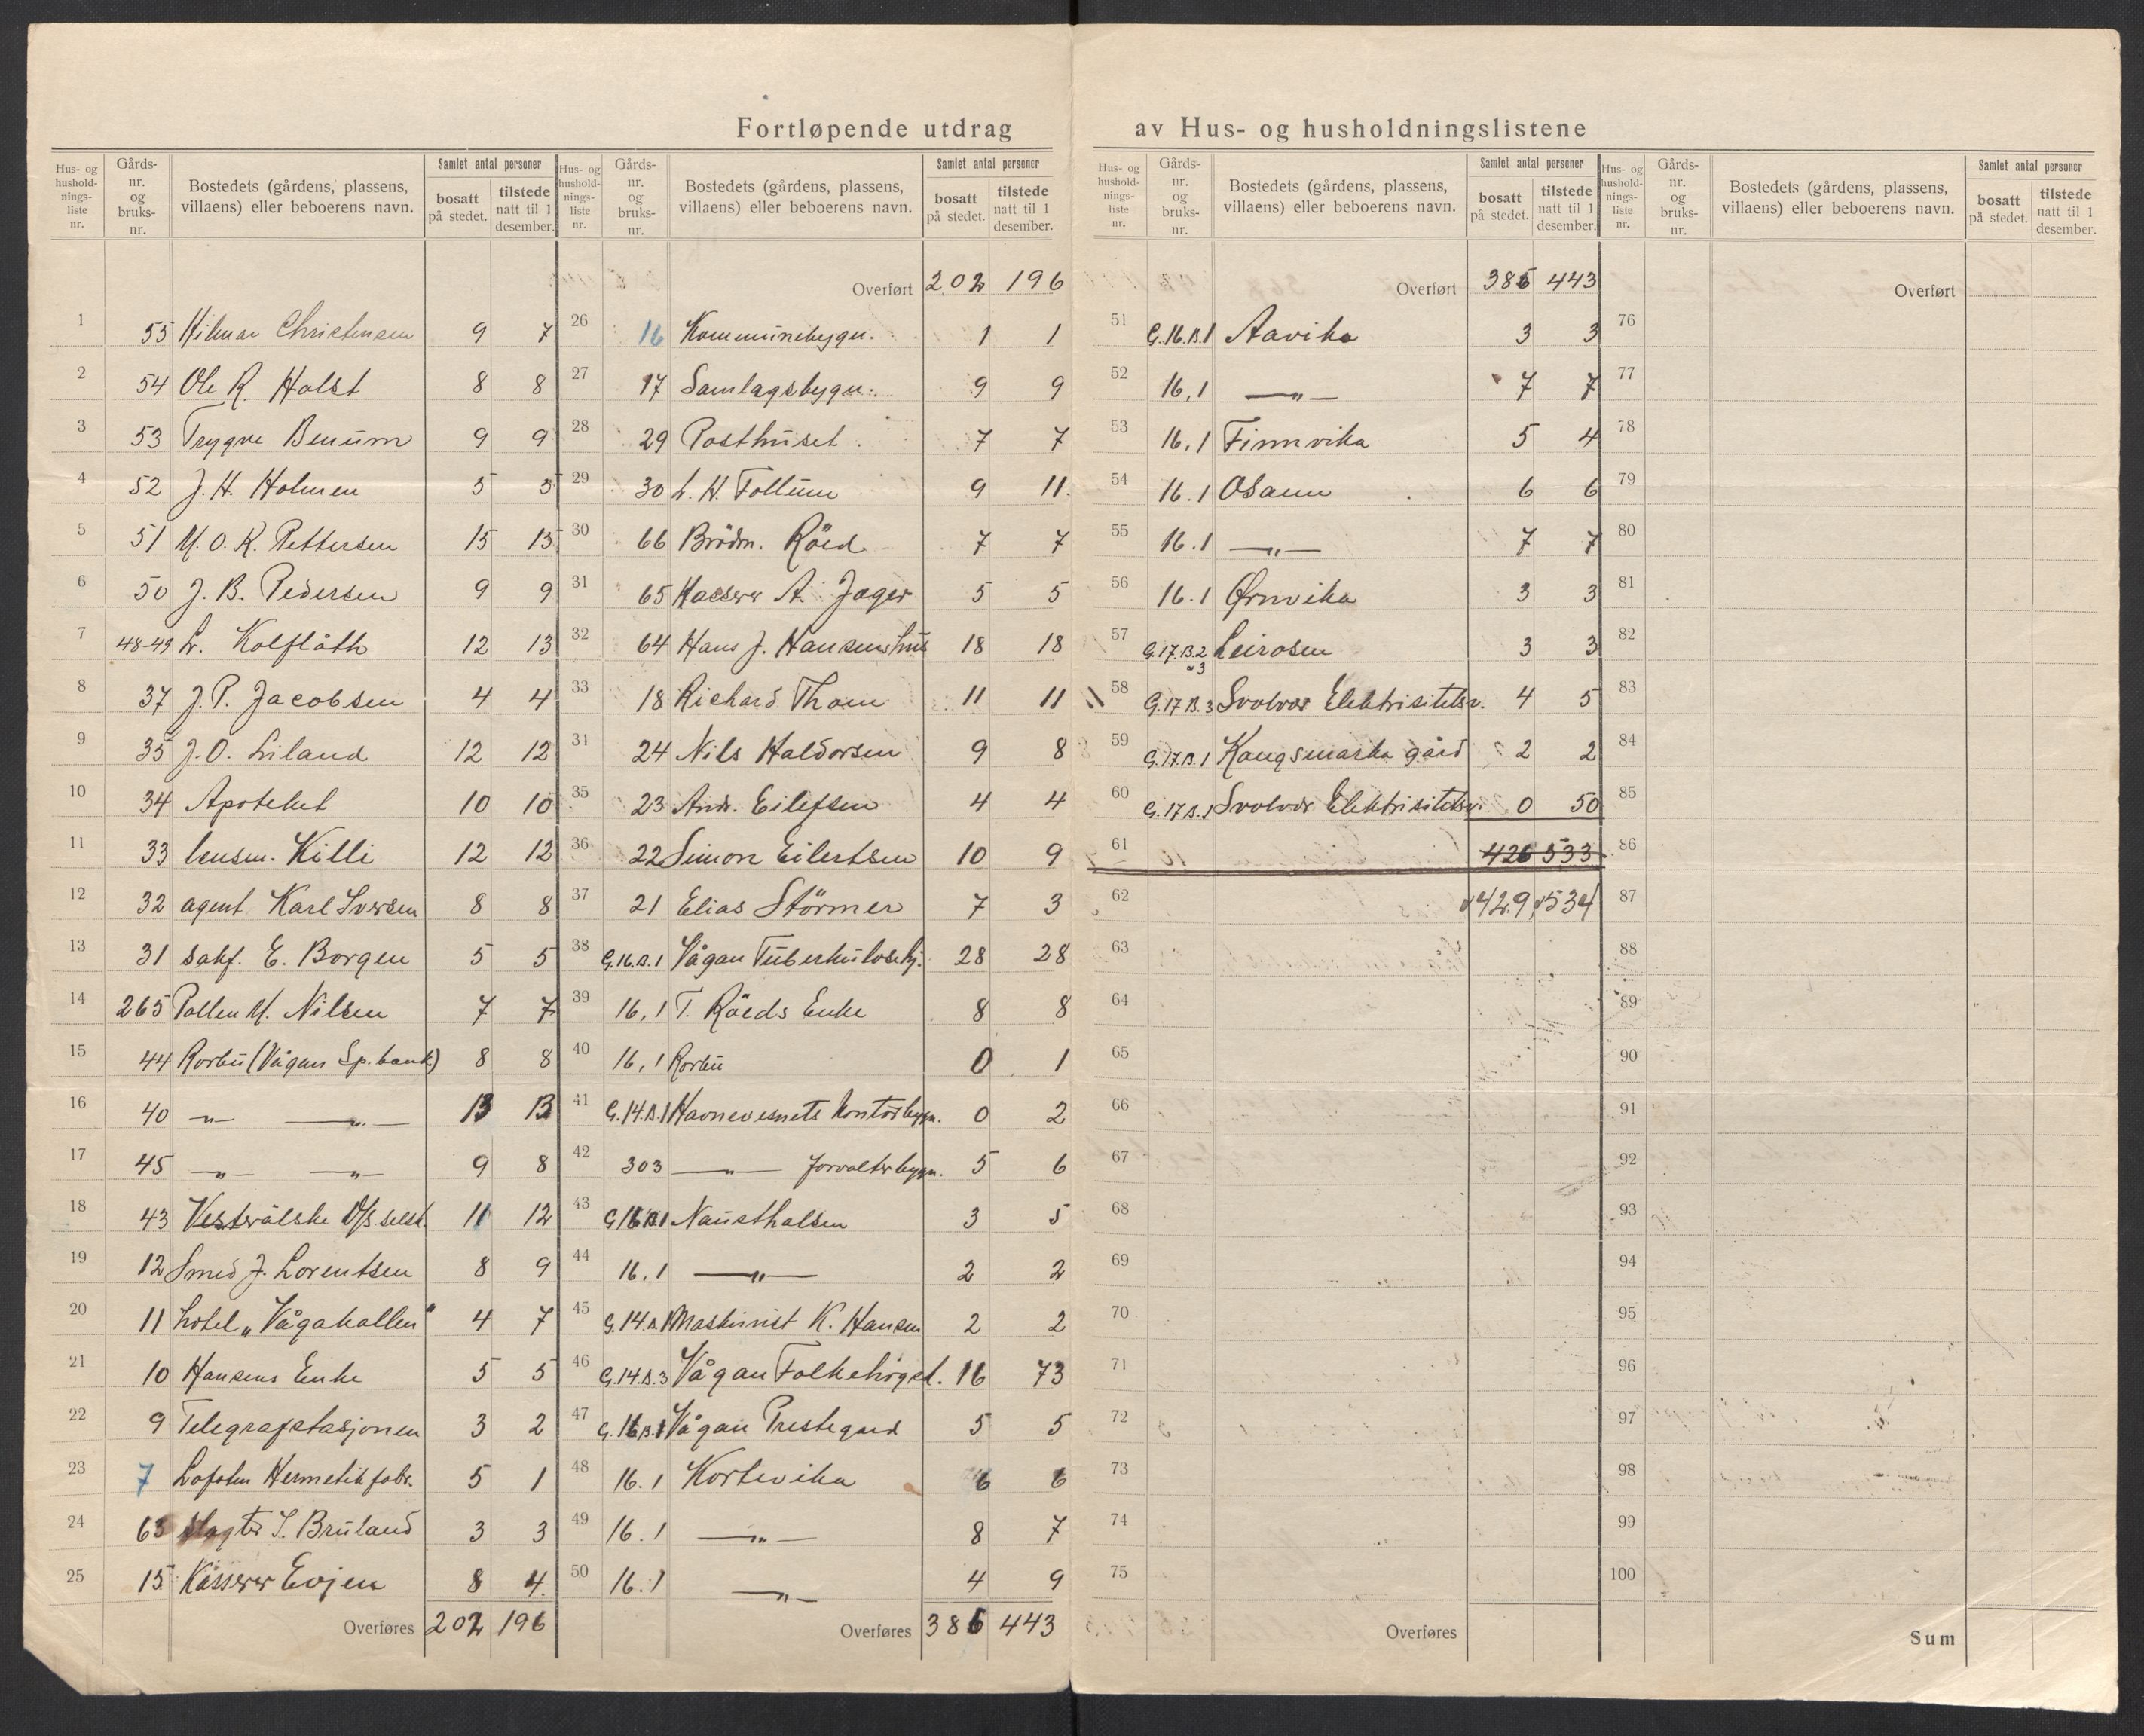 Fortløpende utdrag av Hus- og husholdningslistene
Hus- og hushold-nings-liste nr. | Gårds-nr. og bruks-nr. | Bostedets (gårdens, plassens, villaens) eller beboerens navn. | Samlet antal personer | bosatt på stedet. | tilstede natt til 1 desember.
1 55 Hilmar Christensen 9 7
2 54 Ole R. Holst 8 8
3 53 Trygve Benum 9 9
4 52 J. H. Holmen 5 5
5 51 M. O. K. Pettersen 15 15
6 50 J. B. Pedersen 9 9
7 48-49 L. Kolflåth 12 13
8 37 J. P. Jacobsen 4 4
9 35 J. O. Liland 12 12
10 34 Apoteket 10 10
11 33 lensm. Killi 12 12
12 32 agent Karl Iversen 8 8
13 31 sakf. E. Borgen 5 5
14 265 Pollen M. Nilsen 7 7
15 44 Rorbu (Vågan Sp.bank) 8 8
16 40 —„— —„— 13 13
17 45 —„— —„— 9 8
18 43 Vesterålske D/s selsk. 11 12
19 12 Smed J. Lorentsen 8 9
20 11 hotel „Vågakallen" 4 7
21 10 Hansens Enke 5 5
22 9 Telegrafstasjonen 3 2
23 7 Lofoten Hermetikfabr. 5 1
24 63 slagter I. Bruland 3 3
25 15 Kasserer Evjen 8 4.
Overføres 202 196
Hus- og hushold-nings-liste nr. | Gårds-nr. og bruks-nr. | Bostedets (gårdens, plassens, villaens) eller beboerens navn. | Samlet antal personer | bosatt på stedet. | tilstede natt til 1 desember.
Overført 202 196
26 16 Kommunebygn. 1 1
27 17 Samlagsbygn. 9 9
28 29 Posthuset. 7 7
29 30 L. H. Follum 9 11.
30 66 Brödr. Röed 7 7
31 65 Kasserer A. Jager 5 5
32 64 Hans J. Hansens hus 18 18
33 18 Richard Thom 11 11
31 24 Nils Haldorsen 9 8
35 23 Andr. Eilefsen 4 4
36 22 Simon Eilertsen 10 9
37 21 Elias Störmer 7 3
38 G.16.B.1 Vågan Tuberkulosehj. 28 28
39 16,1 T. Röeds Enke 8 8
40 16,1 Rorbu 0 1
41 G.14.B.1 Havnevesnets kontorbygn. 0 2
42 303 —„— forvalterbygn. 5 6
43 G.16.B.1 Nausthalsen 3 5
44 16.1 —„— 2 2
45 G.14.B.1 Maskinist K. Hansen 2 2
46 G.14.B.3 Vågan Folkehögsk. 16 73
47 G.16.B.1 Vågan Prestegard 5 5
48 16.1 Kortevika 6 6
49 16.1 —„— 8 7
50 16.1 —„— 4 9
Overføres 386 443
Hus- og hushold-nings-liste nr. | Gårds-nr. og bruks-nr. | Bostedets (gårdens, plassens, villaens) eller beboerens navn. | Samlet antal personer | bosatt på stedet. | tilstede natt til 1 desember.
Overført 386 443
51 G.16.B.1 Aavika 3 3
52 16,1 —„— 7 7
53 16,1 Finnvika 5 4
54 16.1 Osann 6 6
55 16.1 —„— 7 7
56 16.1 Ørnvika 3 3
57 G.17.B.2 „3 Leirosen 3 3
58 G.17 B.3 Svolvær Elektrisitetsv. 4 5
59 G.17.B.1 Kongsmarka gård 2 2
60 G.17 B.1 Svolvær Elektrisitetsv. 0 50
61 426 533
62 429 534
63
64
65
66
67
68
69
70
71
72
73
74
75
Overføres
Hus- og hushold-nings-liste nr. | Gårds-nr. og bruks-nr. | Bostedets (gårdens, plassens, villaens) eller beboerens navn. | Samlet antal personer | bosatt på stedet. | tilstede natt til 1 desember.
Overført
76
77
78
79
80
81
82
83
84
85
86
87
88
89
90
91
92
93
94
95
96
97
98
99
100
Sum